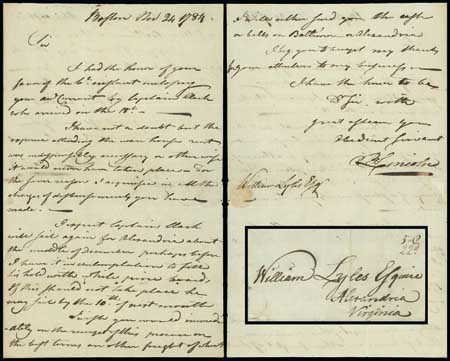 Boston Nov 24 1784.
Sir
I had the honor of your
favor of the 6th instant inclosing
your acct Current by Captain Clark
who arrived on the 18th
I have not a doubt but the
expence attending the ware house rent
was indispensibly necessary or other wise
it would never have taken place
the same reason I acquiesce in all the
charges of disbursements you have
made.
I expect Captain Clark
will sail again for Alexandria about
the middle of December perhaps before
I have it in contemplation to fill
his hold with white pine boards,
If this should not take place he
may sail by the 10th of next month
I wish you would immedi
ately on the receipt of this procure on
the best terms an other freight of wheat
I will either send you the cash
or bills on Baltimore or Alexandria
I beg you to accept my thanks
for your attention to my business
I have the honor to be
Dr Sir, with
great esteem your
Obedient Servant
Lincoln
William Lyles Esqr
William Lyles Esquire
Alexandria
Virginia